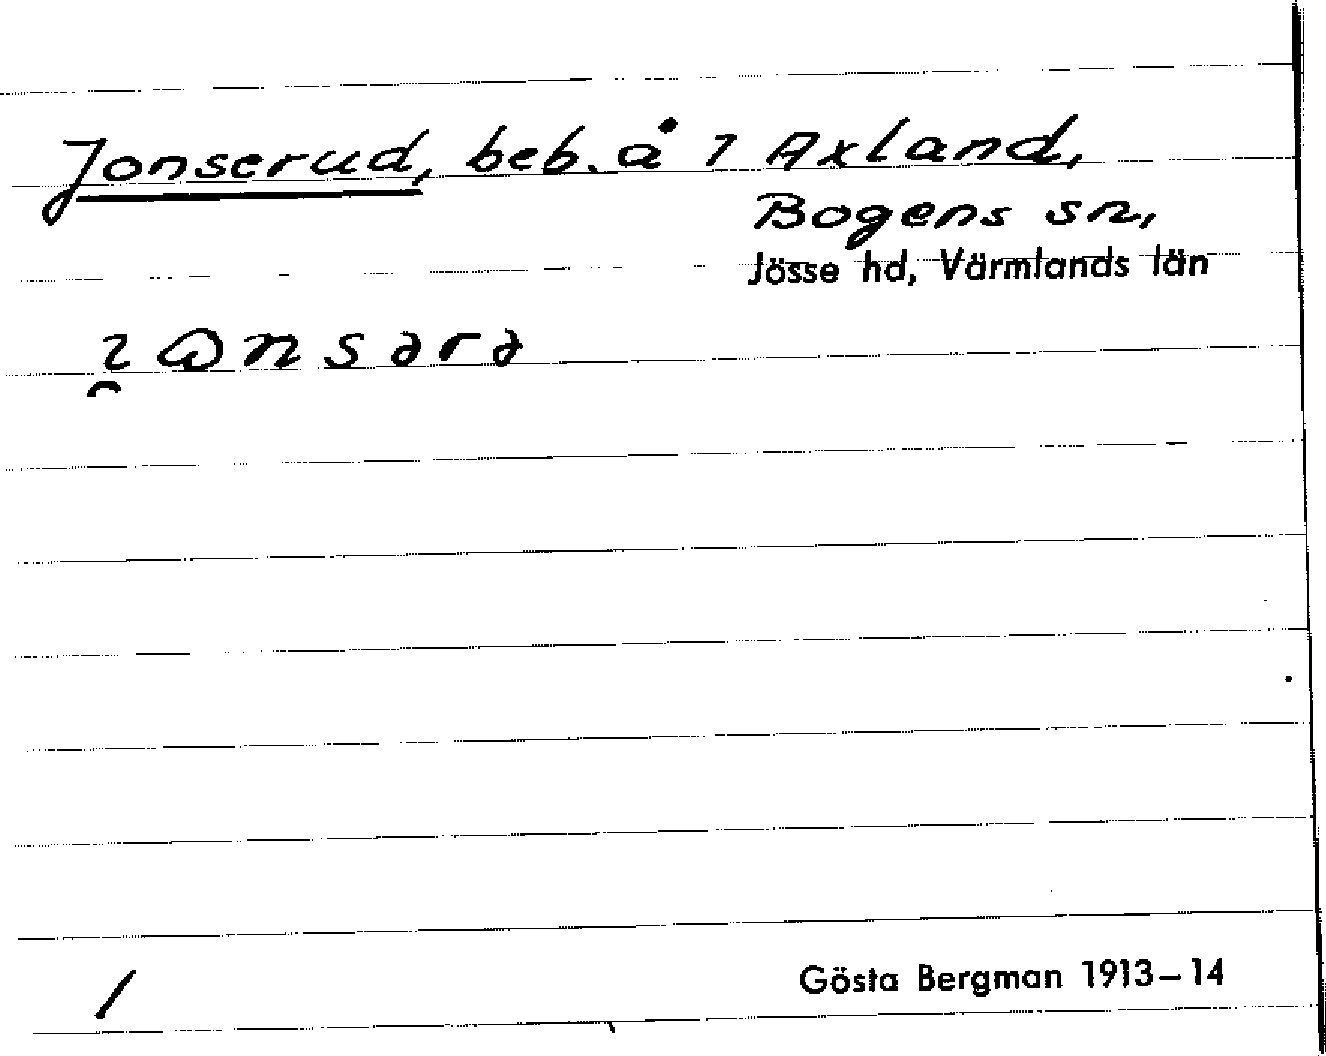 Jonserud, beb. å 1 Axland,
Bogens sn,
Jösse hd, Värmlands län
1
Gösta Bergman 1913–14